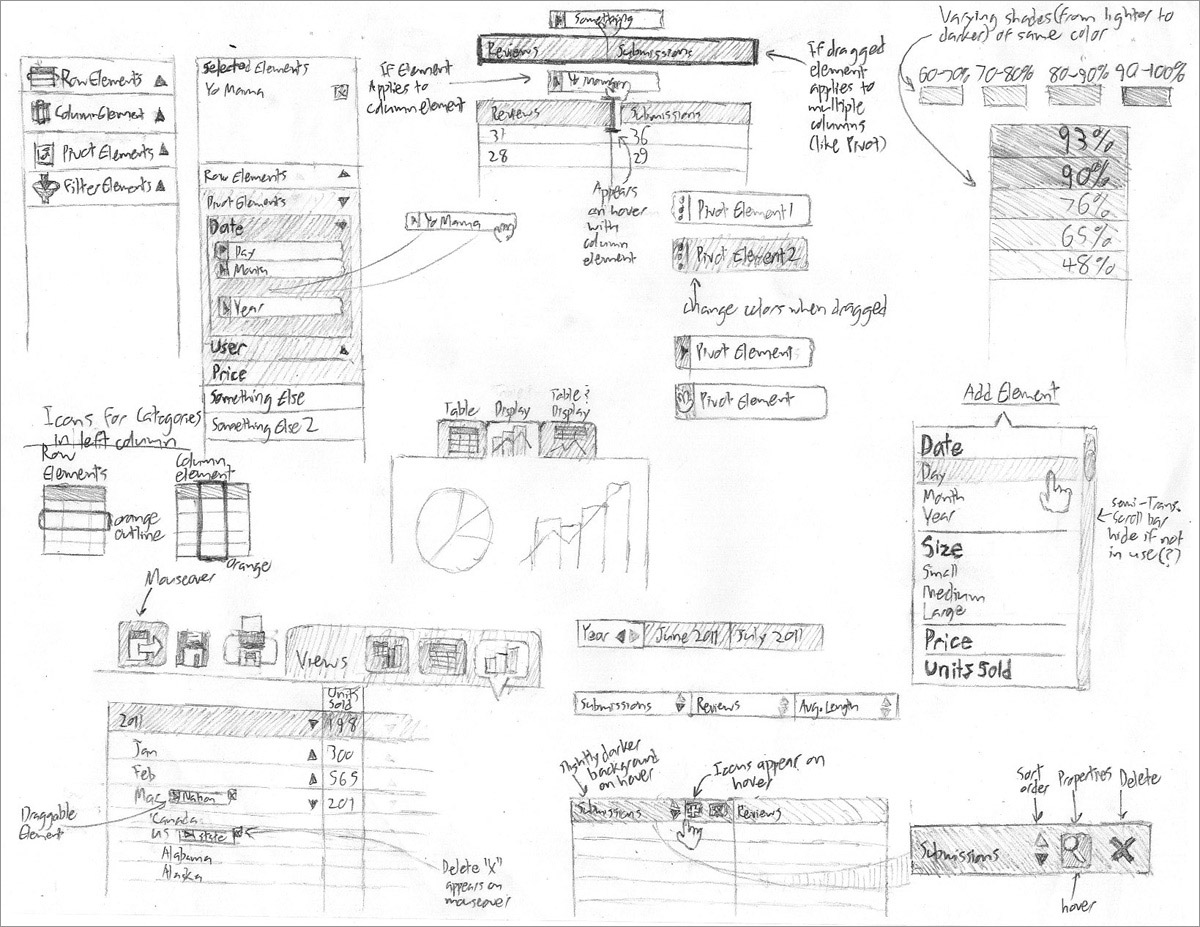 Row Elements
Column Element
Pivot Elements
Filter Elements
Selected Elements
Yo Mama
Row Elements
Pivot Elements
Date
Day
Month
Year
User
Price
Something Else
Something Else 2
If Element
Applies to
column element
Something
Reviews
Submissions
Yo Mama
Reviews
Submissions
31
36
28
29
Appears
on hover
with
column
element
Yo Mama
If dragged
element
applies to
multiple
columns
(like Pivot)
Pivot Element 1
Pivot Element 2
change colors when dragged
Pivot Element
Pivot Element
Varying shades (from lighter to
darker) of same color
60-70%
70-80%
80-90%
90-100%
93%
90%
76%
65%
48%
Icons for Categories
in left column
Row
Elements
orange
outline
Column
element
orange
Table
Display
Table &
Display
Add Element
Date
Day
Month
Year
Size
Small
Medium
Large
Price
Units Sold
semi-Trans.
Scroll bar
hide if not
in use(?)
Mouseover
Views
Units
Sold
2011
198
Jan
300
Feb
565
Mar
Nation
x
201
Canada
US
state
x
Alabama
Alaska
Draggable
Element
Delete "X"
appears on
mouseover
Year
June 2011
July 2011
Submissions
Reviews
Avg. Length
Slightly darker
background
on hover
Icons appear on
hover
Submissions
Reviews
Sort
order
Properties
Delete
Submissions
X
hover